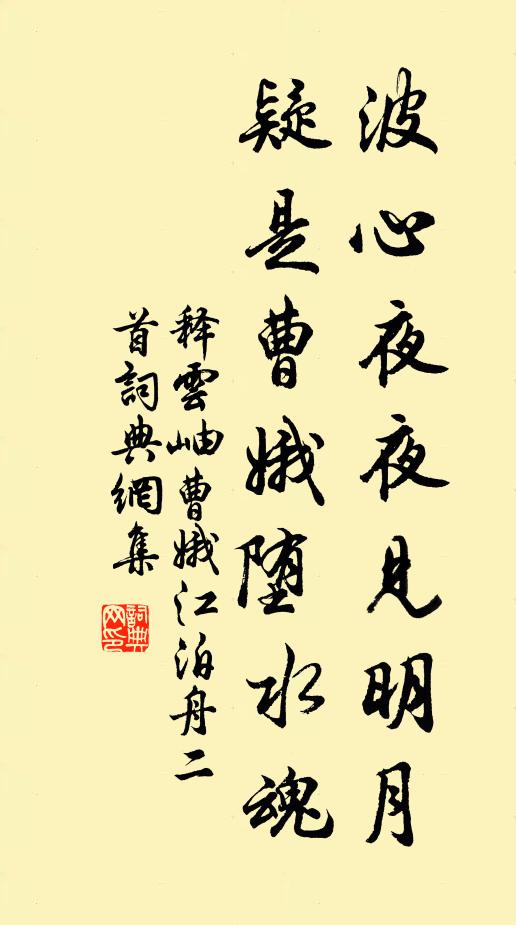 波心夜夜見明月
疑是曹娥堕水魂
释雲岫曹娥江泊舟二
首詞典網集
詞典网印